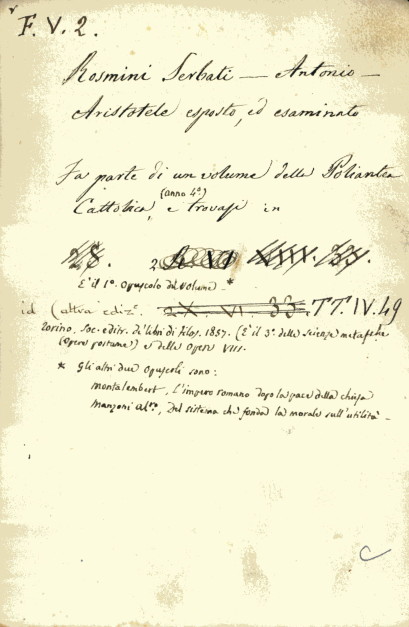 F. V. 2.
Rosmini Serbati — Antonio —
Aristotele esposto, ed esaminato
Fa parte di un volume della Poliantea
(anno 4º)
Cattolica, e trovasi in
È il 1º Opuscolo del volume *
id (altra ediz.e TT. IV. 49
Torino, Soc. editr. di libri di filos. 1857. (È il 3º delle scienze metafis.che
(Opere postume) e delle Opere VIII.
* Gli altri due Opuscoli sono:
Montalembert, L'impero romano dopo la pace della chiesa
Manzoni Al.ro, Del sistema che fonda la morale sull'utilità –
C